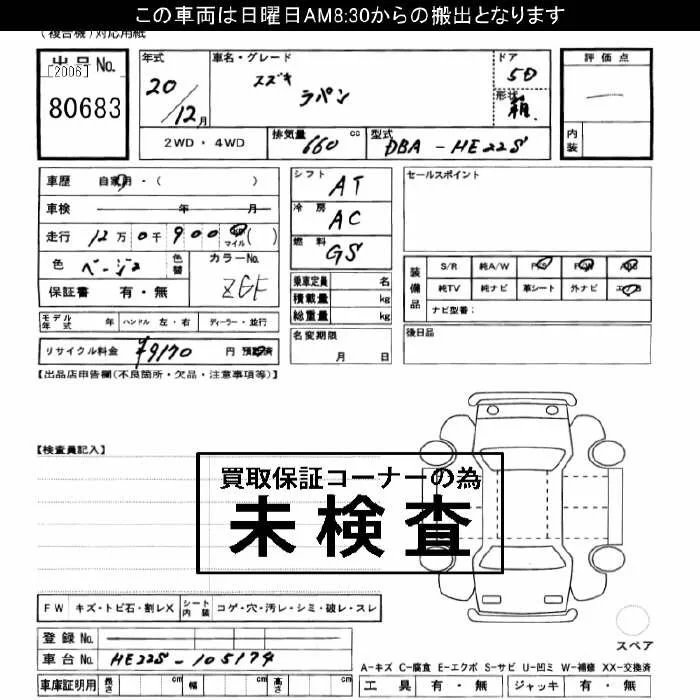 この車両は日曜日AM8:30からの搬出となります
(複合機)対応用紙
出品No.
[2006]
80683
年式
20/12月
車名・グレード
スズキ
ラパン
ドア
5D
形状
箱
評価点
—
内装
2WD・4WD
排気量 660 cc
型式 DBA-HE22S
車歴 自家用・( )
車検 年 月
走行 12万0千900 km マイル ( )
色 ベージュ
色替
カラーNo.
ZGF
保証書 有・無
モデル年式 年 ハンドル 左・右 ディーラー・並行
リサイクル料金 ¥9170 円 預託済
シフト AT
冷房 AC
燃料 GS
乗車定員 名
積載量 kg
総重量 kg
名変期限
月 日
セールスポイント
装備品
S/R 純A/W P/S P/W ABS
純TV 純ナビ 革シート 外ナビ エアB
ナビ型番:
後日品
【出品店申告欄(不良箇所・欠品・注意事項等)】
【検査員記入】
買取保証コーナーの為
未検査
FW キズ・トビ石・割レX シート内装 コゲ・穴・汚レ・シミ・破レ・スレ
登録No.
車台No. HE22S-105174
車庫証明用 長さ cm 幅 cm 高さ cm
スペア
A-キズ C-腐食 E-エクボ S-サビ U-凹ミ W-補修 XX-交換済
工具 有・無 ジャッキ 有・無